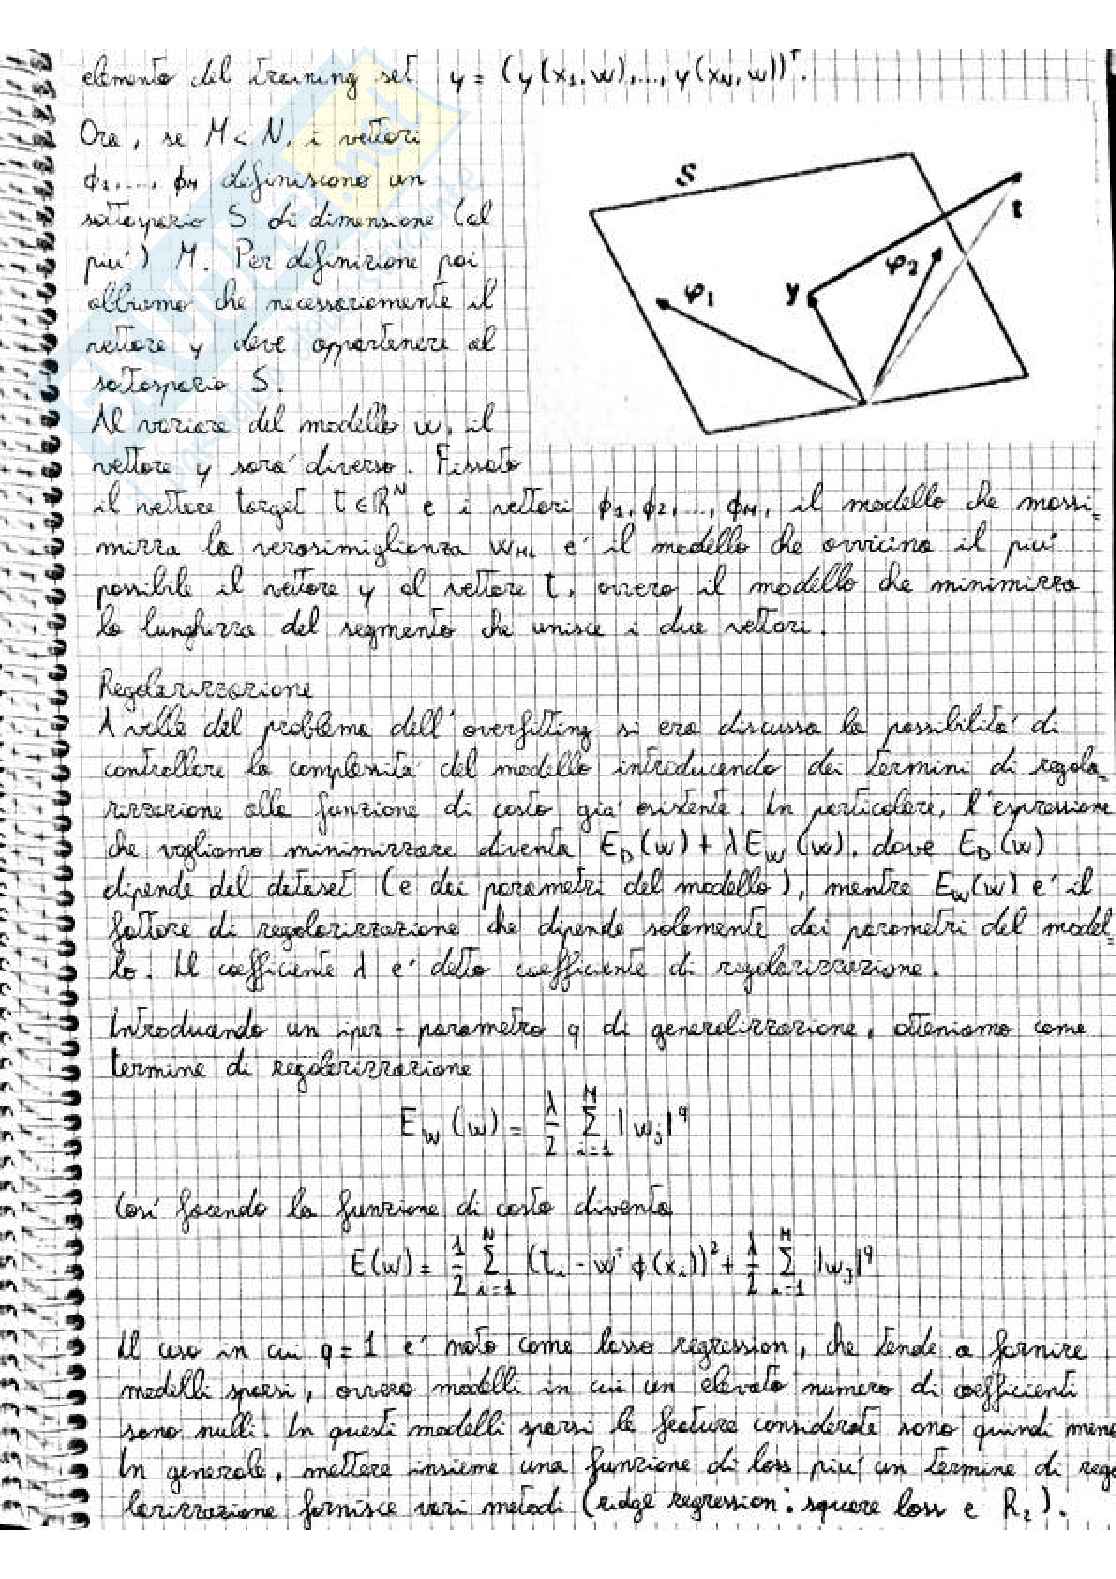 elemento del training set y = (y(x₁,w),..., y(x_N,w))ᵀ.
Ora, se M < N, i vettori
ϕ₁,..., ϕ_M definiscono un
sottospazio S di dimensione (al
piu') M. Per definizione poi
abbiamo che necessariamente il
vettore y deve appartenere al
sottospazio S.
Al variare del modello w, il
vettore y sara' diverso. Fissato
S
t
φ₂
φ₁
y
il vettore target t ∈ Rᴺ e i vettori ϕ₁, ϕ₂, ..., ϕ_M, il modello che massi-
mizza la verosimiglianza w_ML e' il modello che avvicina il piu'
possibile il vettore y al vettore t, ovvero il modello che minimizza
la lunghezza del segmento che unisce i due vettori.
Regolarizzazione
A valle del problema dell'overfitting si era discussa la possibilita' di
controllare la complessita' del modello introducendo dei termini di regola-
rizzazione alla funzione di costo gia' esistente. In particolare, l'espressione
che vogliamo minimizzare diventa E_D(w) + λE_W(w), dove E_D(w)
dipende dal dataset (e dai parametri del modello), mentre E_W(w) e' il
fattore di regolarizzazione che dipende solamente dai parametri del model-
lo. Il coefficiente λ e' detto coefficiente di regolarizzazione.
Introducendo un iper-parametro q di generalizzazione, otteniamo come
termine di regolarizzazione
E_W(w) = λ/2 Σ_{i=1}^{M} |w_j|^q
Cosi' facendo la funzione di costo diventa
E(w) = 1/2 Σ_{i=1}^{N} (t_i - wᵀϕ(x_i))² + λ/2 Σ_{i=1}^{M} |w_j|^q
Il caso in cui q = 1 e' noto come lasso regression, che tende a fornire
modelli sparsi, ovvero modelli in cui un elevato numero di coefficienti
sono nulli. In questi modelli sparsi le feature considerate sono quindi meno
In generale, mettere insieme una funzione di loss piu' un termine di rego
larizzazione fornisce vari metodi (ridge regression: square loss e R₂).